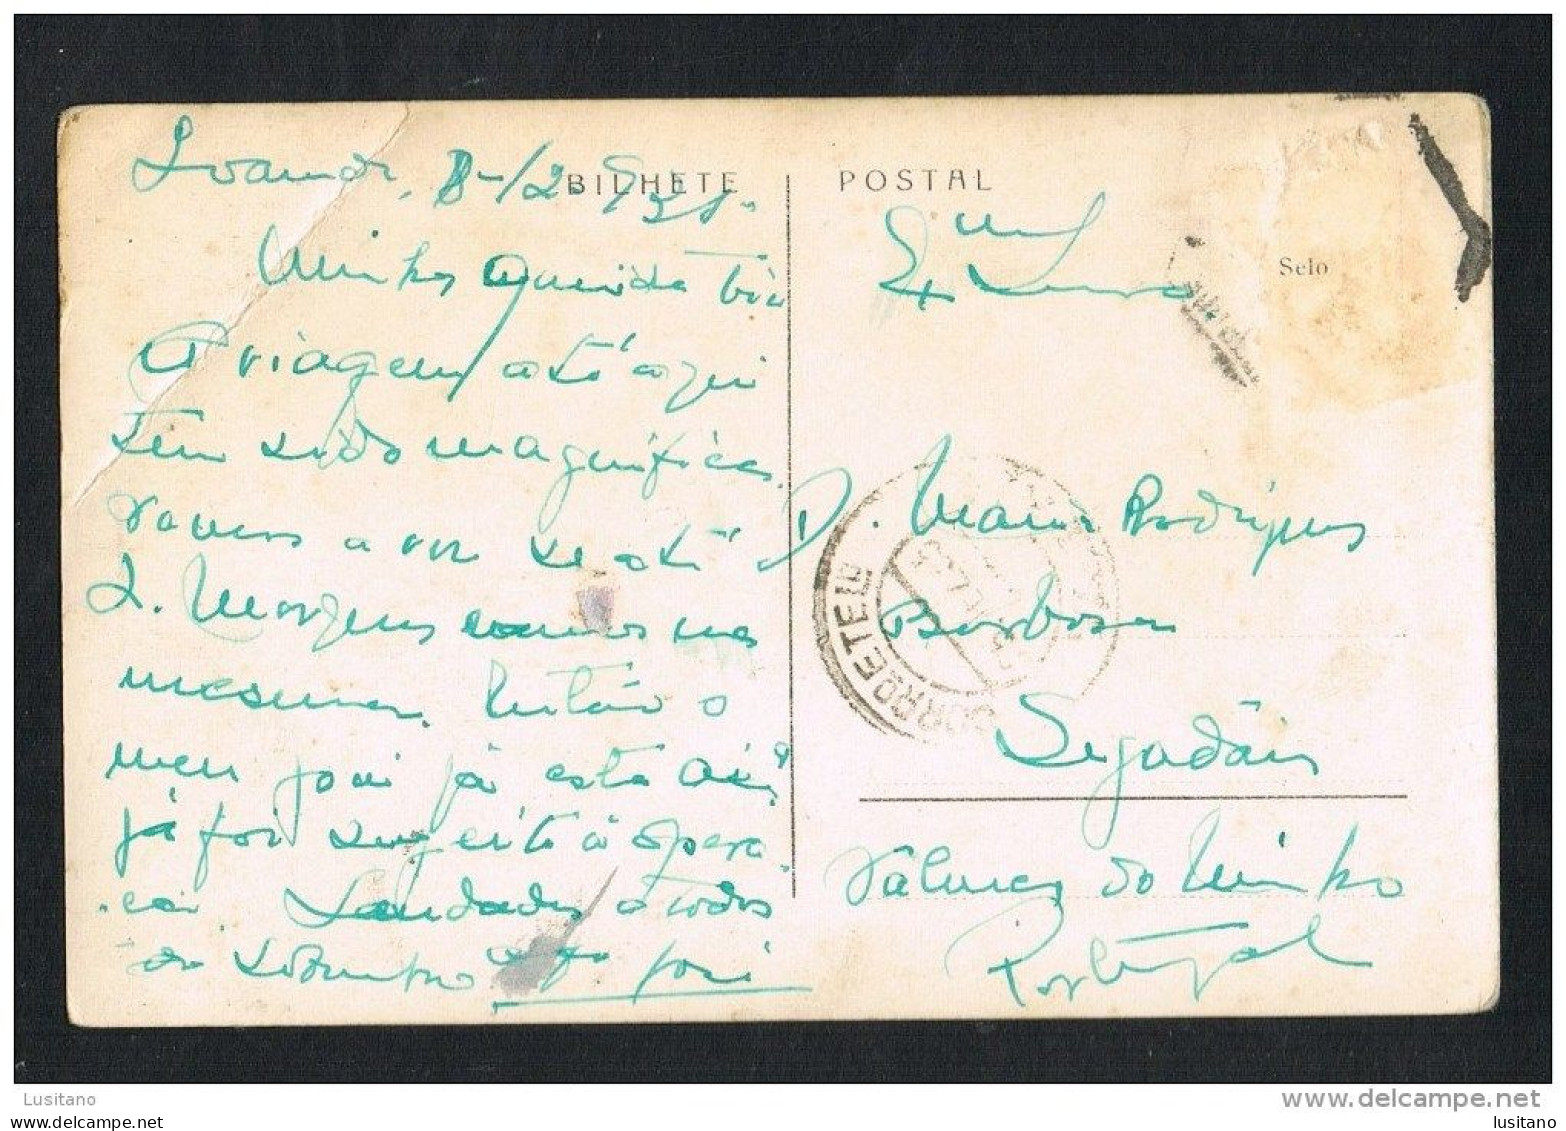 BILHETE POSTAL
Selo
Loanda, 8-12-951.
Minha querida tia
A viagem até aqui
tem sido magnifica.
Vamos a ver se até
L. Marques vamos na
mesma. Então o
meu José já está aí?
já foi sugeito á opera-
ção. Saudades a todos
do sobrinho
José
Exma Senra
D. Maria Rodrigues
Barbosa
Segadães
Valença do Minho
Portugal
CORREIO
Lusitano
www.delcampe.net
Lusitano
lusitano